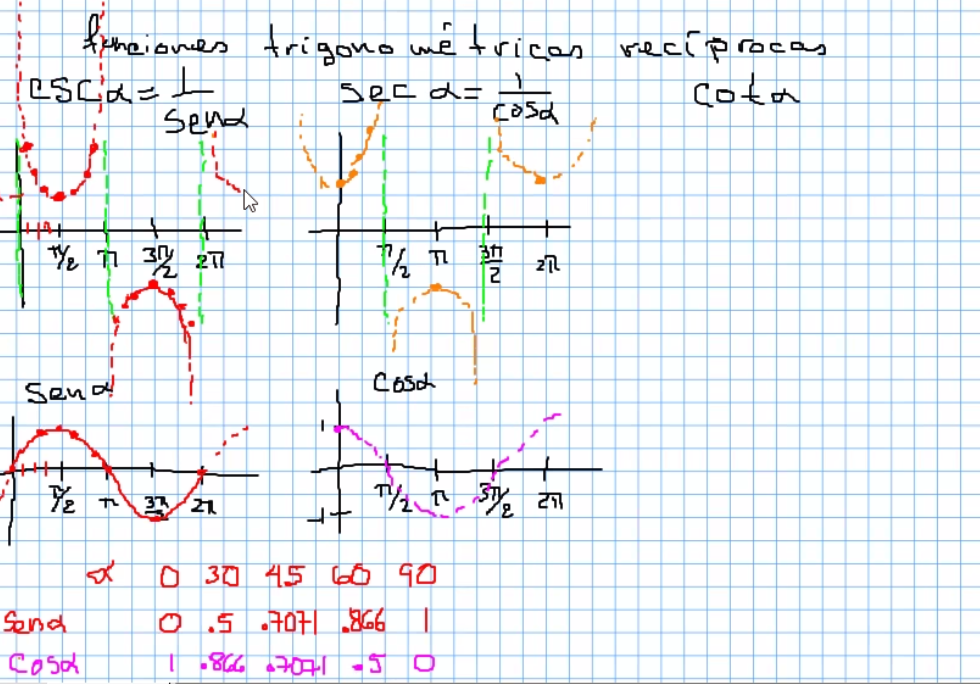 funciones trigonométricas recíprocas
cscα = 1/senα secα = 1/cosα cotα
π/2 π 3π/2 2π
π/2 π 3π/2 2π
Senα
Cosα
π/2 π 3π/2 2π
1 π/2 π 3π/2 2π
-1
α 0 30 45 60 90
Senα 0 .5 .7071 .866 1
Cosα 1 .866 .7071 .5 0